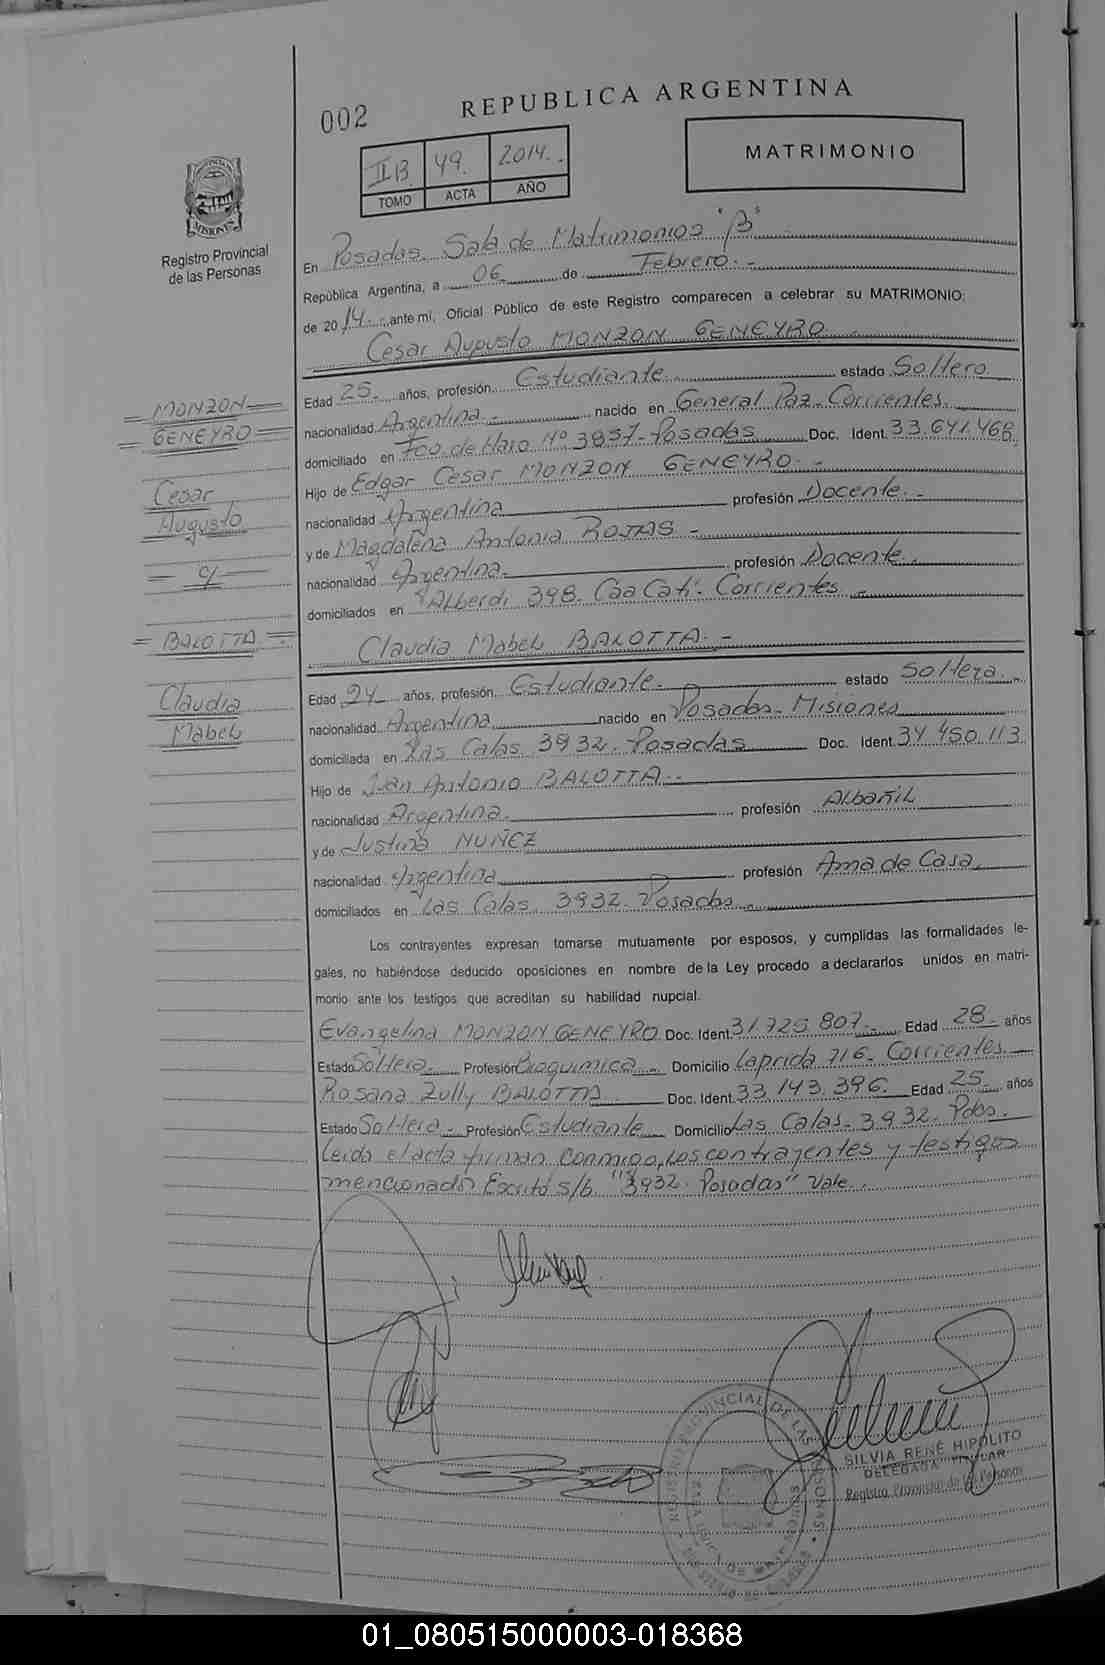 002
REPUBLICA ARGENTINA
II B 49. 2014.
TOMO ACTA AÑO
MATRIMONIO
PROVINCIA DE MISIONES
Registro Provincial
de las Personas
En Posadas. Sala de Matrimonios "B"
República Argentina, a 06 de Febrero.-
de 2014.- ante mí, Oficial Público de este Registro comparecen a celebrar su MATRIMONIO:
Cesar Augusto MONZON GENEYRO.
Edad 25. años, profesión Estudiante estado Soltero
nacionalidad Argentina.- nacido en General Paz- Corrientes.
domiciliado en Fco. de Haro Nº 3857- Posadas Doc. Ident. 33.641.468
Hijo de Edgar Cesar MONZON GENEYRO.-
nacionalidad Argentina profesión Docente.-
y de Magdalena Antonia ROJAS-
nacionalidad Argentina. profesión Docente.
domiciliados en Alberdi 398. Caa Cati- Corrientes.
Claudia Mabel BALOTTA.-
Edad 24 años, profesión Estudiante. estado Soltera.
nacionalidad Argentina nacido en Posadas- Misiones
domiciliada en Las Calas 3932. Posadas Doc. Ident. 34 450 113
Hijo de Juan Antonio BALOTTA.-
nacionalidad Argentina. profesión Albañil
y de Justina NUÑEZ
nacionalidad Argentina profesión Ama de Casa
domiciliados en Las Calas 3932- Posadas.
Los contrayentes expresan tomarse mutuamente por esposos, y cumplidas las formalidades le-
gales, no habiéndose deducido oposiciones en nombre de la Ley procedo a declararlos unidos en matri-
monio ante los testigos que acreditan su habilidad nupcial.
Evangelina MONZON GENEYRO Doc. Ident. 31.725.807.- Edad 28- años
Estado Soltera. Profesión Bioquimica Domicilio Laprida 716- Corrientes.
Rosana Zully BALOTTA Doc. Ident. 33.143.396. Edad 25- años
Estado Soltera- Profesión Estudiante Domicilio Las Calas- 3932. Pdas.
Leido el acta firman conmigo, los contrayentes y testigos
mencionado Escrito s/b "3932- Posadas" Vale.
= MONZON =
= GENEYRO =
Cesar
Augusto
= c/ =
= BALOTTA =
Claudia
Mabel
SILVIA RENÉ HIPOLITO
DELEGADA TITULAR
Registro Provincial de las Personas
01_080515000003-018368